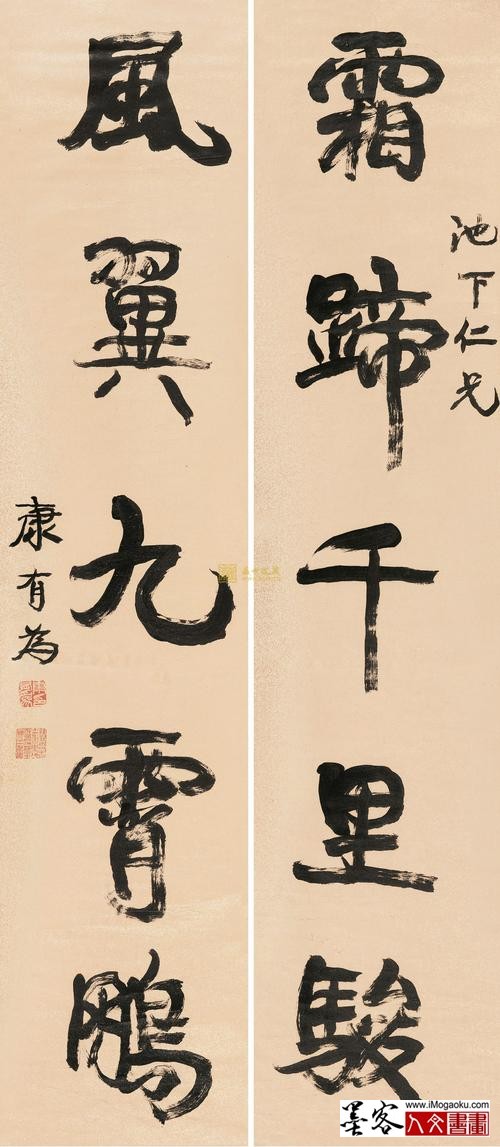 霜蹄千里駿
池下仁兄
風翼九霄鵬
康有為
www.iMogaoku.com
墨客
人文書畫